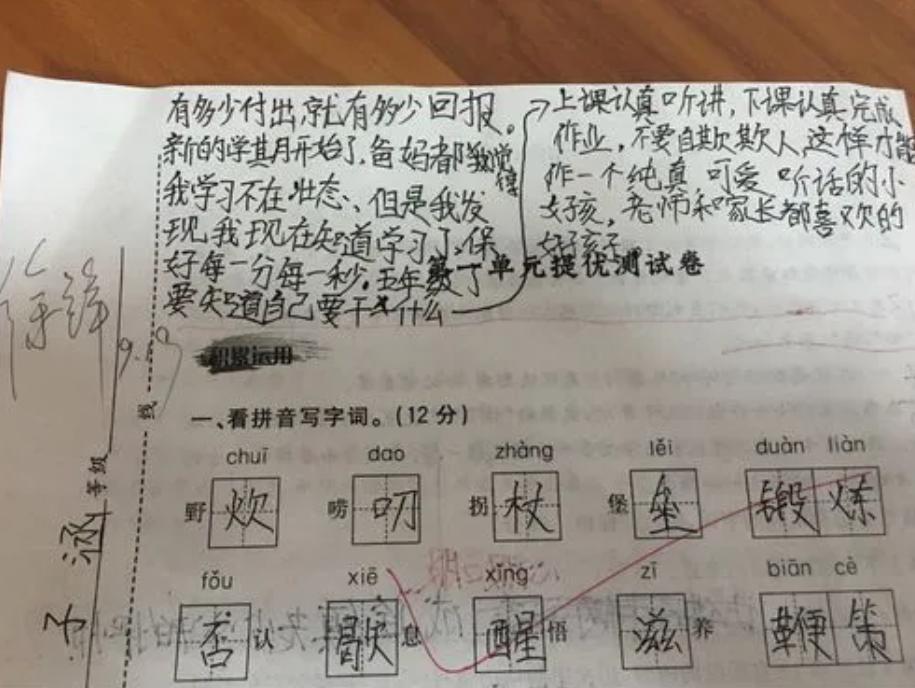 有多少付出,就有多少回报。
新的学其月开始了,爸妈都我觉得
我学习不在壮态、但是我发
现,我现在知道学习了,保
好每一分每一秒。五年级了
要知道自己要干什么
上课认真听讲,下课认真完成
作业,不要自欺欺人,这样才能
作一个纯真 可爱 听话的小
女孩,老师和家长都喜欢的
好孩子
单元提优测试卷
积累运用
一、看拼音写字词。(12分)
chuī dao zhàng lěi duàn liàn
野炊 唠叨 拐杖 堡垒 锻炼
fǒu xiē xǐng zī biān cè
否认 歇息 醒悟 滋养 鞭策
线
等级
9.19
子涵